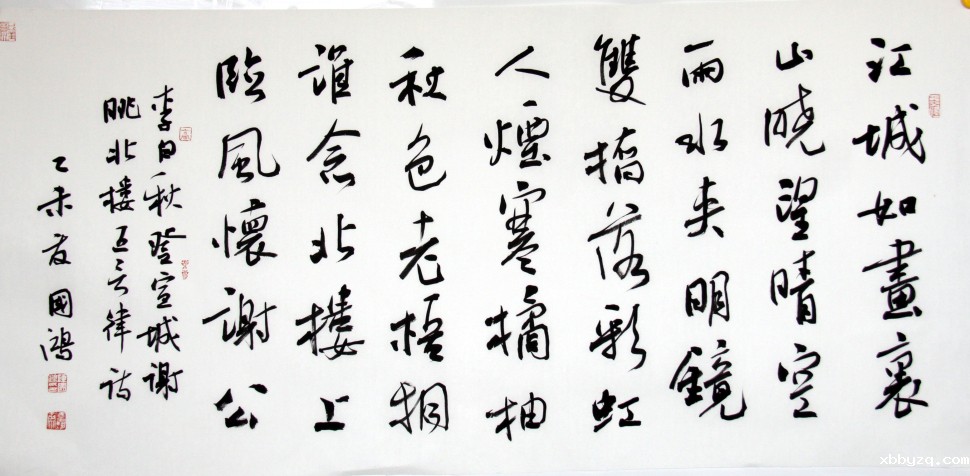 江城如畫裏
山曉望晴空
兩水夾明鏡
雙橋落彩虹
人煙寒橘柚
秋色老梧桐
誰念北樓上
臨風懷謝公
李白秋登宣城謝
眺北樓五言律詩
乙未 國鴻
xbbyzq.com